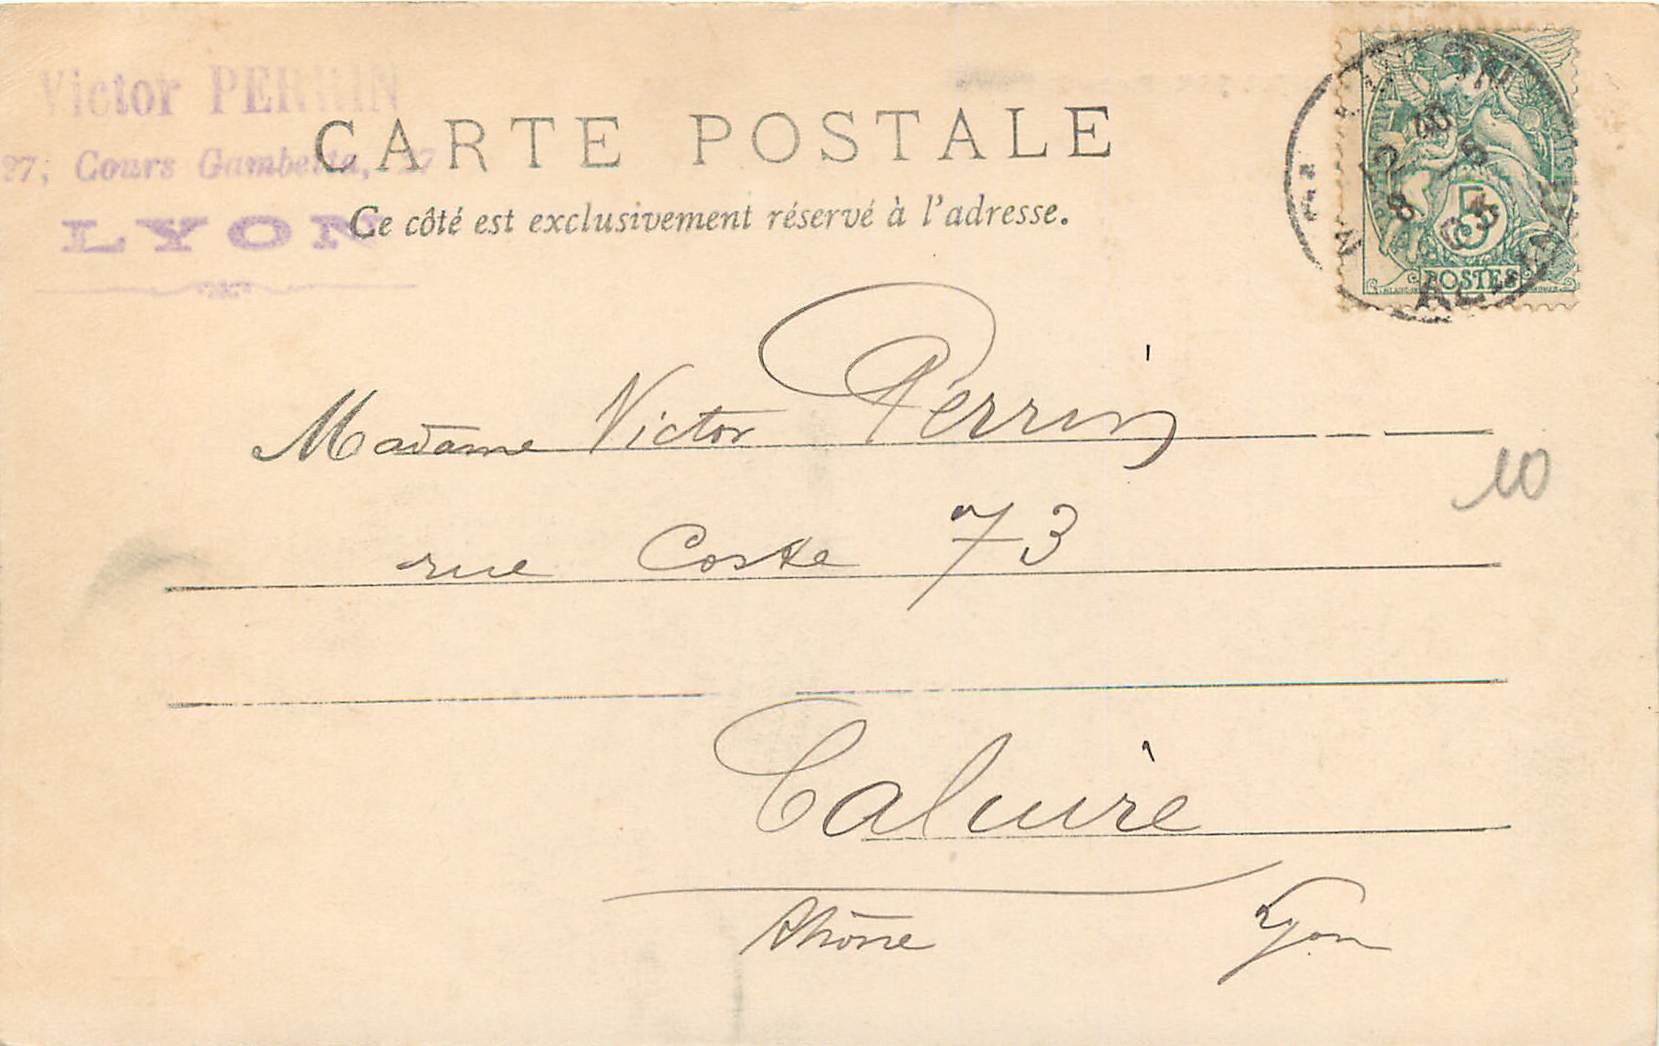 Victor PERRIN
27, Cours Gambetta, 27
LYON
CARTE POSTALE
Ce côté est exclusivement réservé à l'adresse.
5
POSTES
Madame Victor Perrin
rue Coste 73
Caluire
Rhône Lyon
10